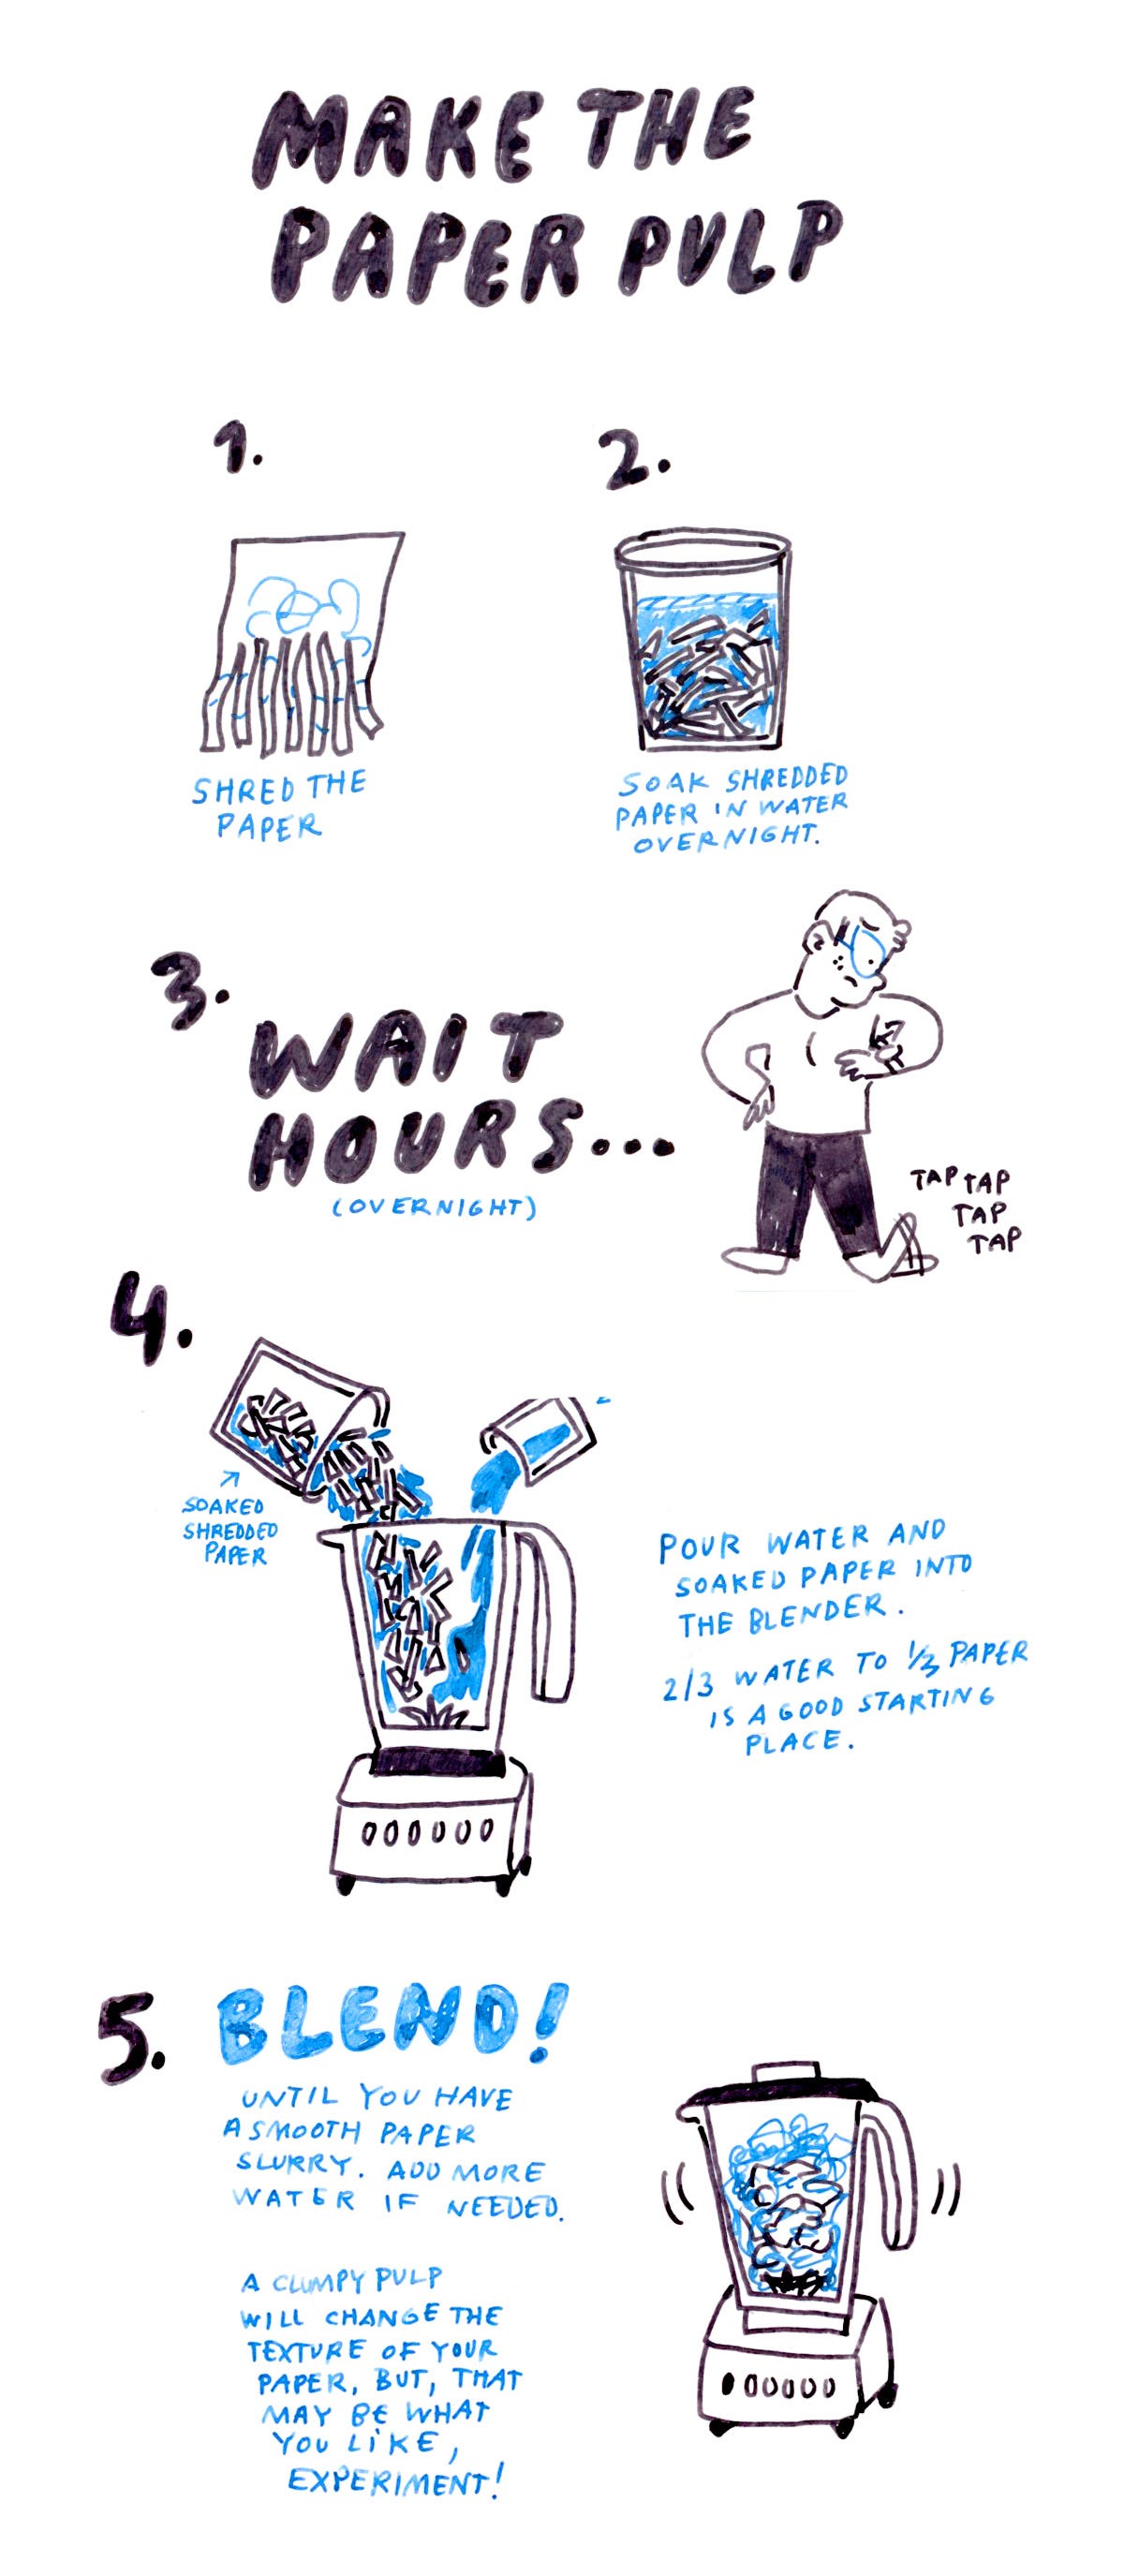 MAKE THE
PAPER PULP
1.
SHRED THE
PAPER
2.
SOAK SHREDDED
PAPER IN WATER
OVERNIGHT.
3.
WAIT
HOURS...
(OVERNIGHT)
TAP TAP
TAP
TAP
4.
SOAKED
SHREDDED
PAPER
POUR WATER AND
SOAKED PAPER INTO
THE BLENDER.
2/3 WATER TO 1/3 PAPER
IS A GOOD STARTING
PLACE.
5. BLEND!
UNTIL YOU HAVE
A SMOOTH PAPER
SLURRY. ADD MORE
WATER IF NEEDED.
A CLUMPY PULP
WILL CHANGE THE
TEXTURE OF YOUR
PAPER, BUT, THAT
MAY BE WHAT
YOU LIKE,
EXPERIMENT!